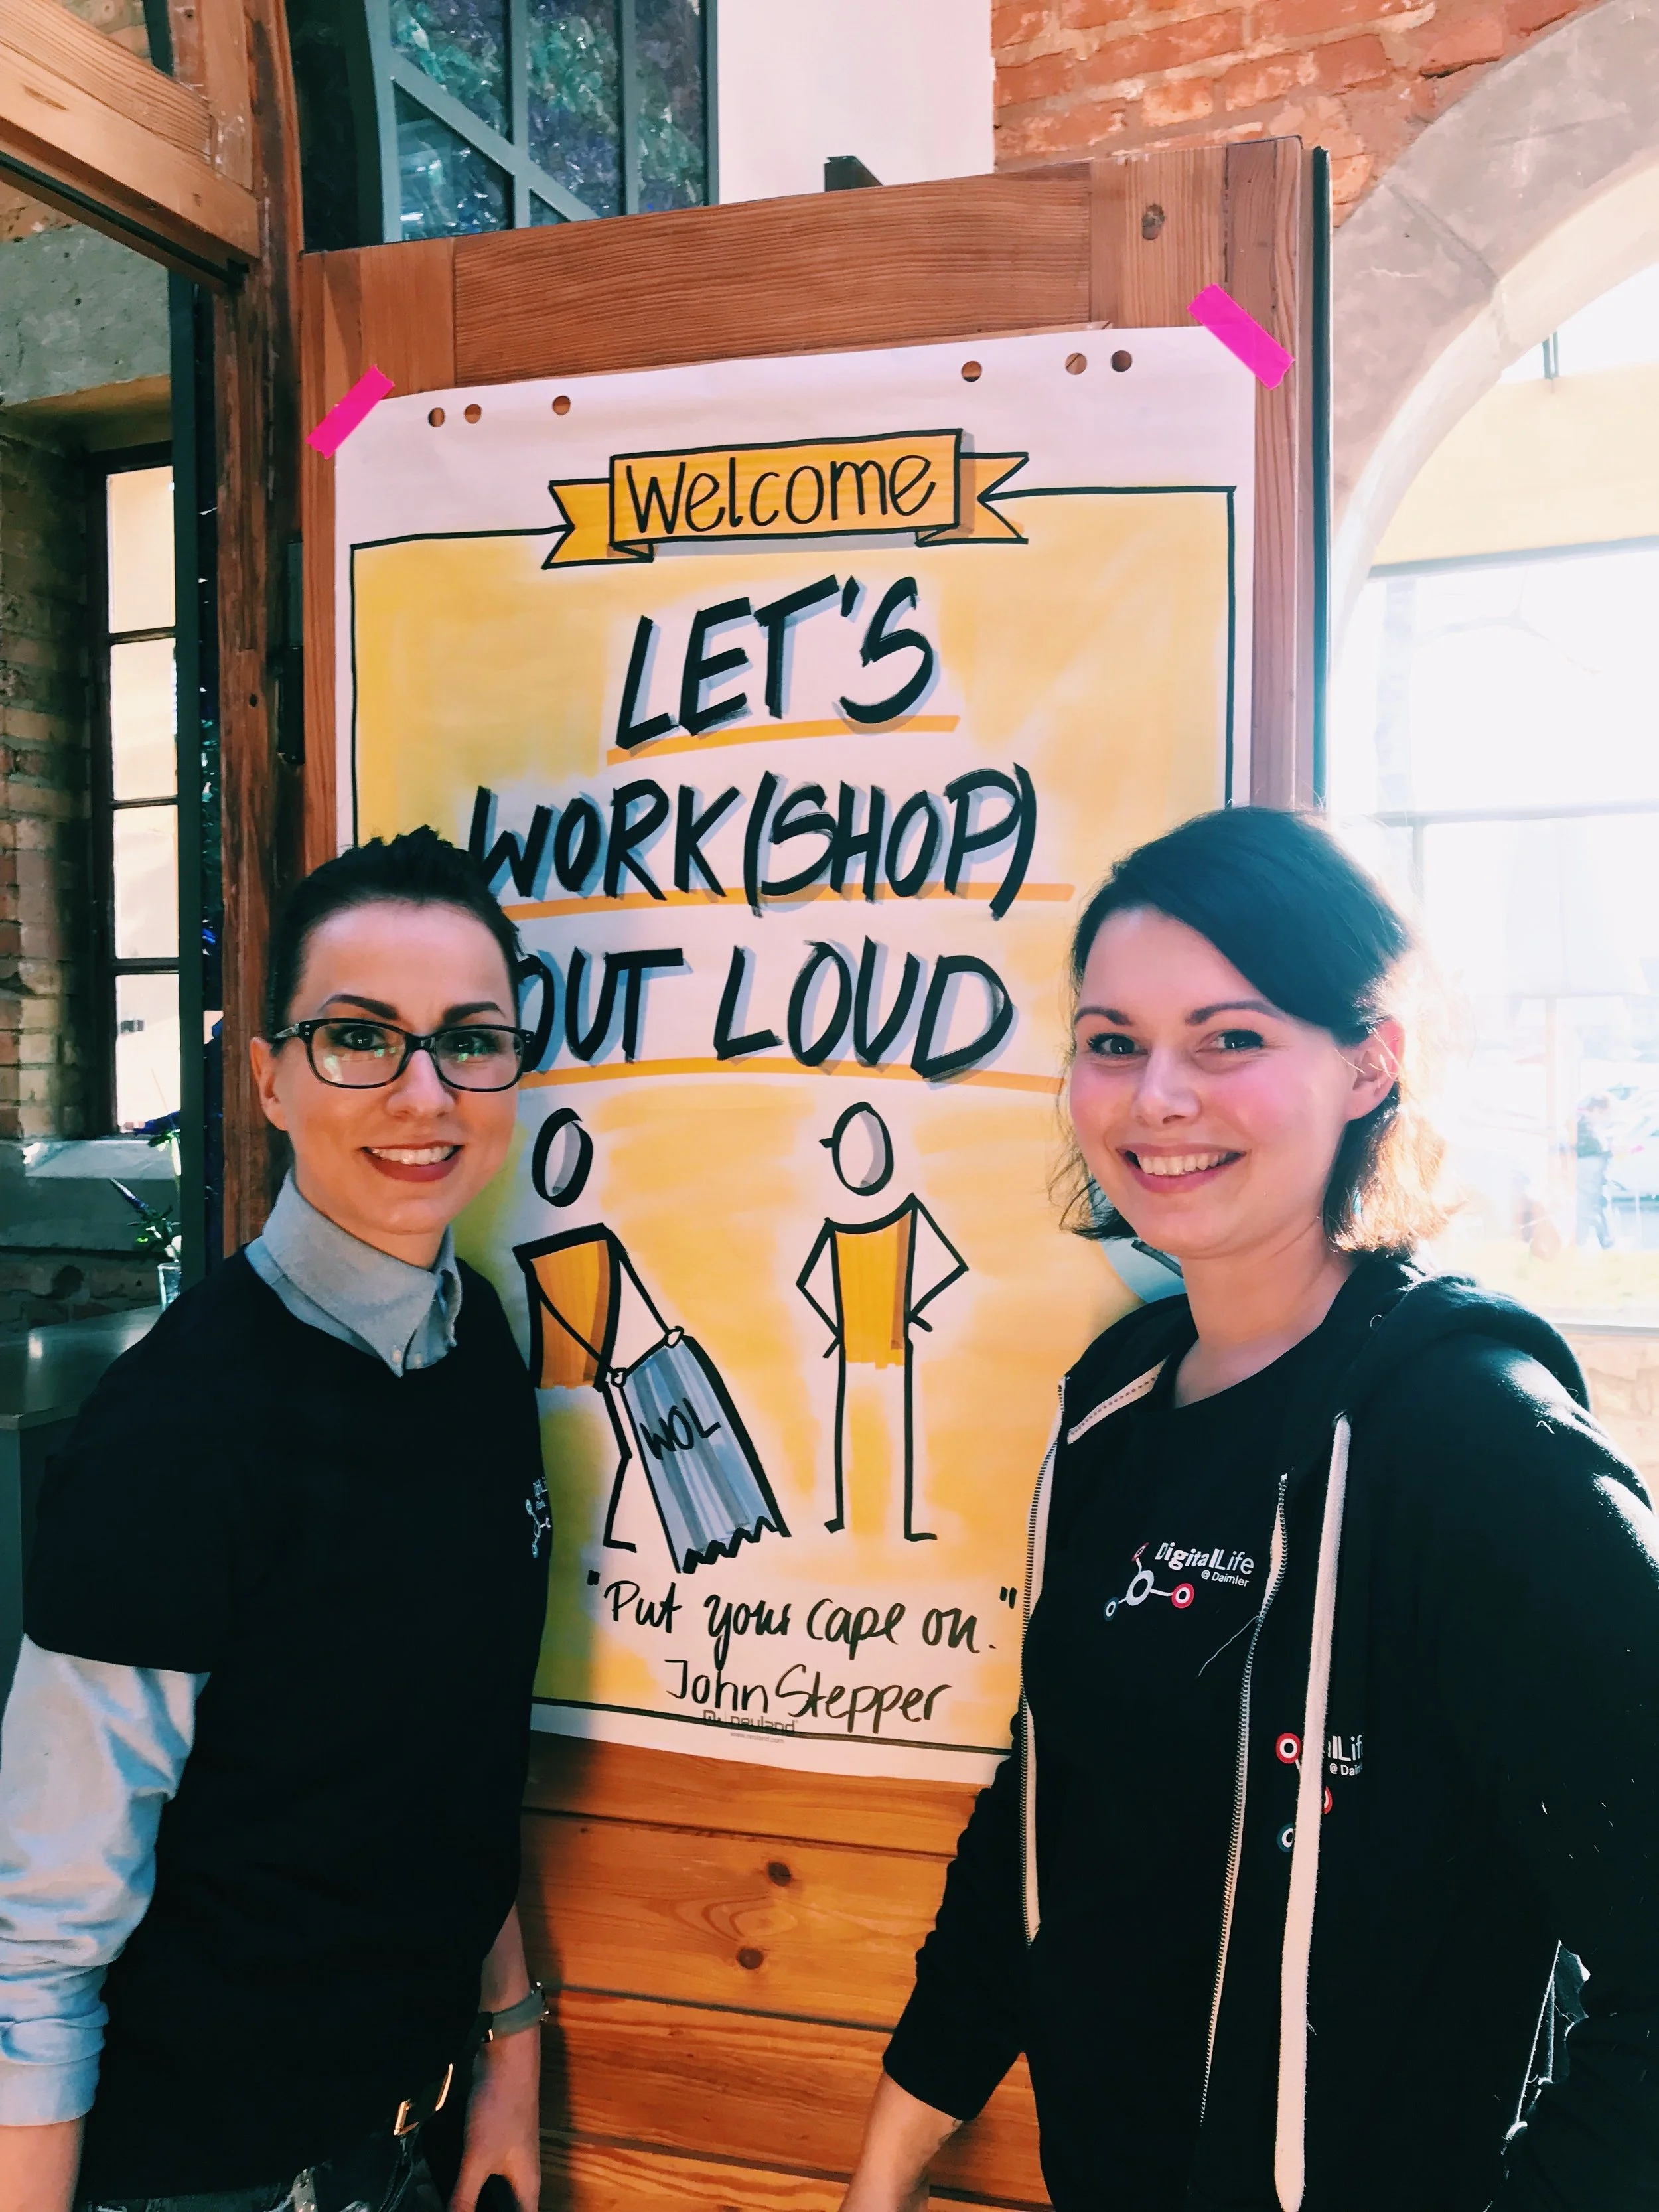 Welcome
LET'S
WORK(SHOP)
OUT LOUD
WOL
"Put your cape on."
John Stepper
neuland
www.neuland.com
DigitalLife
@ Daimler
lLif
@ Dai